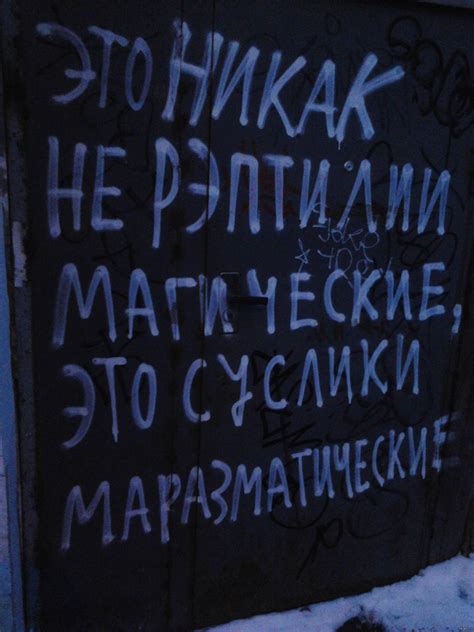 ЭТО НИКАК
НЕ РЭПТИЛИИ
МАГИЧЕСКИЕ,
ЭТО СУСЛИКИ
МАРАЗМАТИЧЕСКИЕ